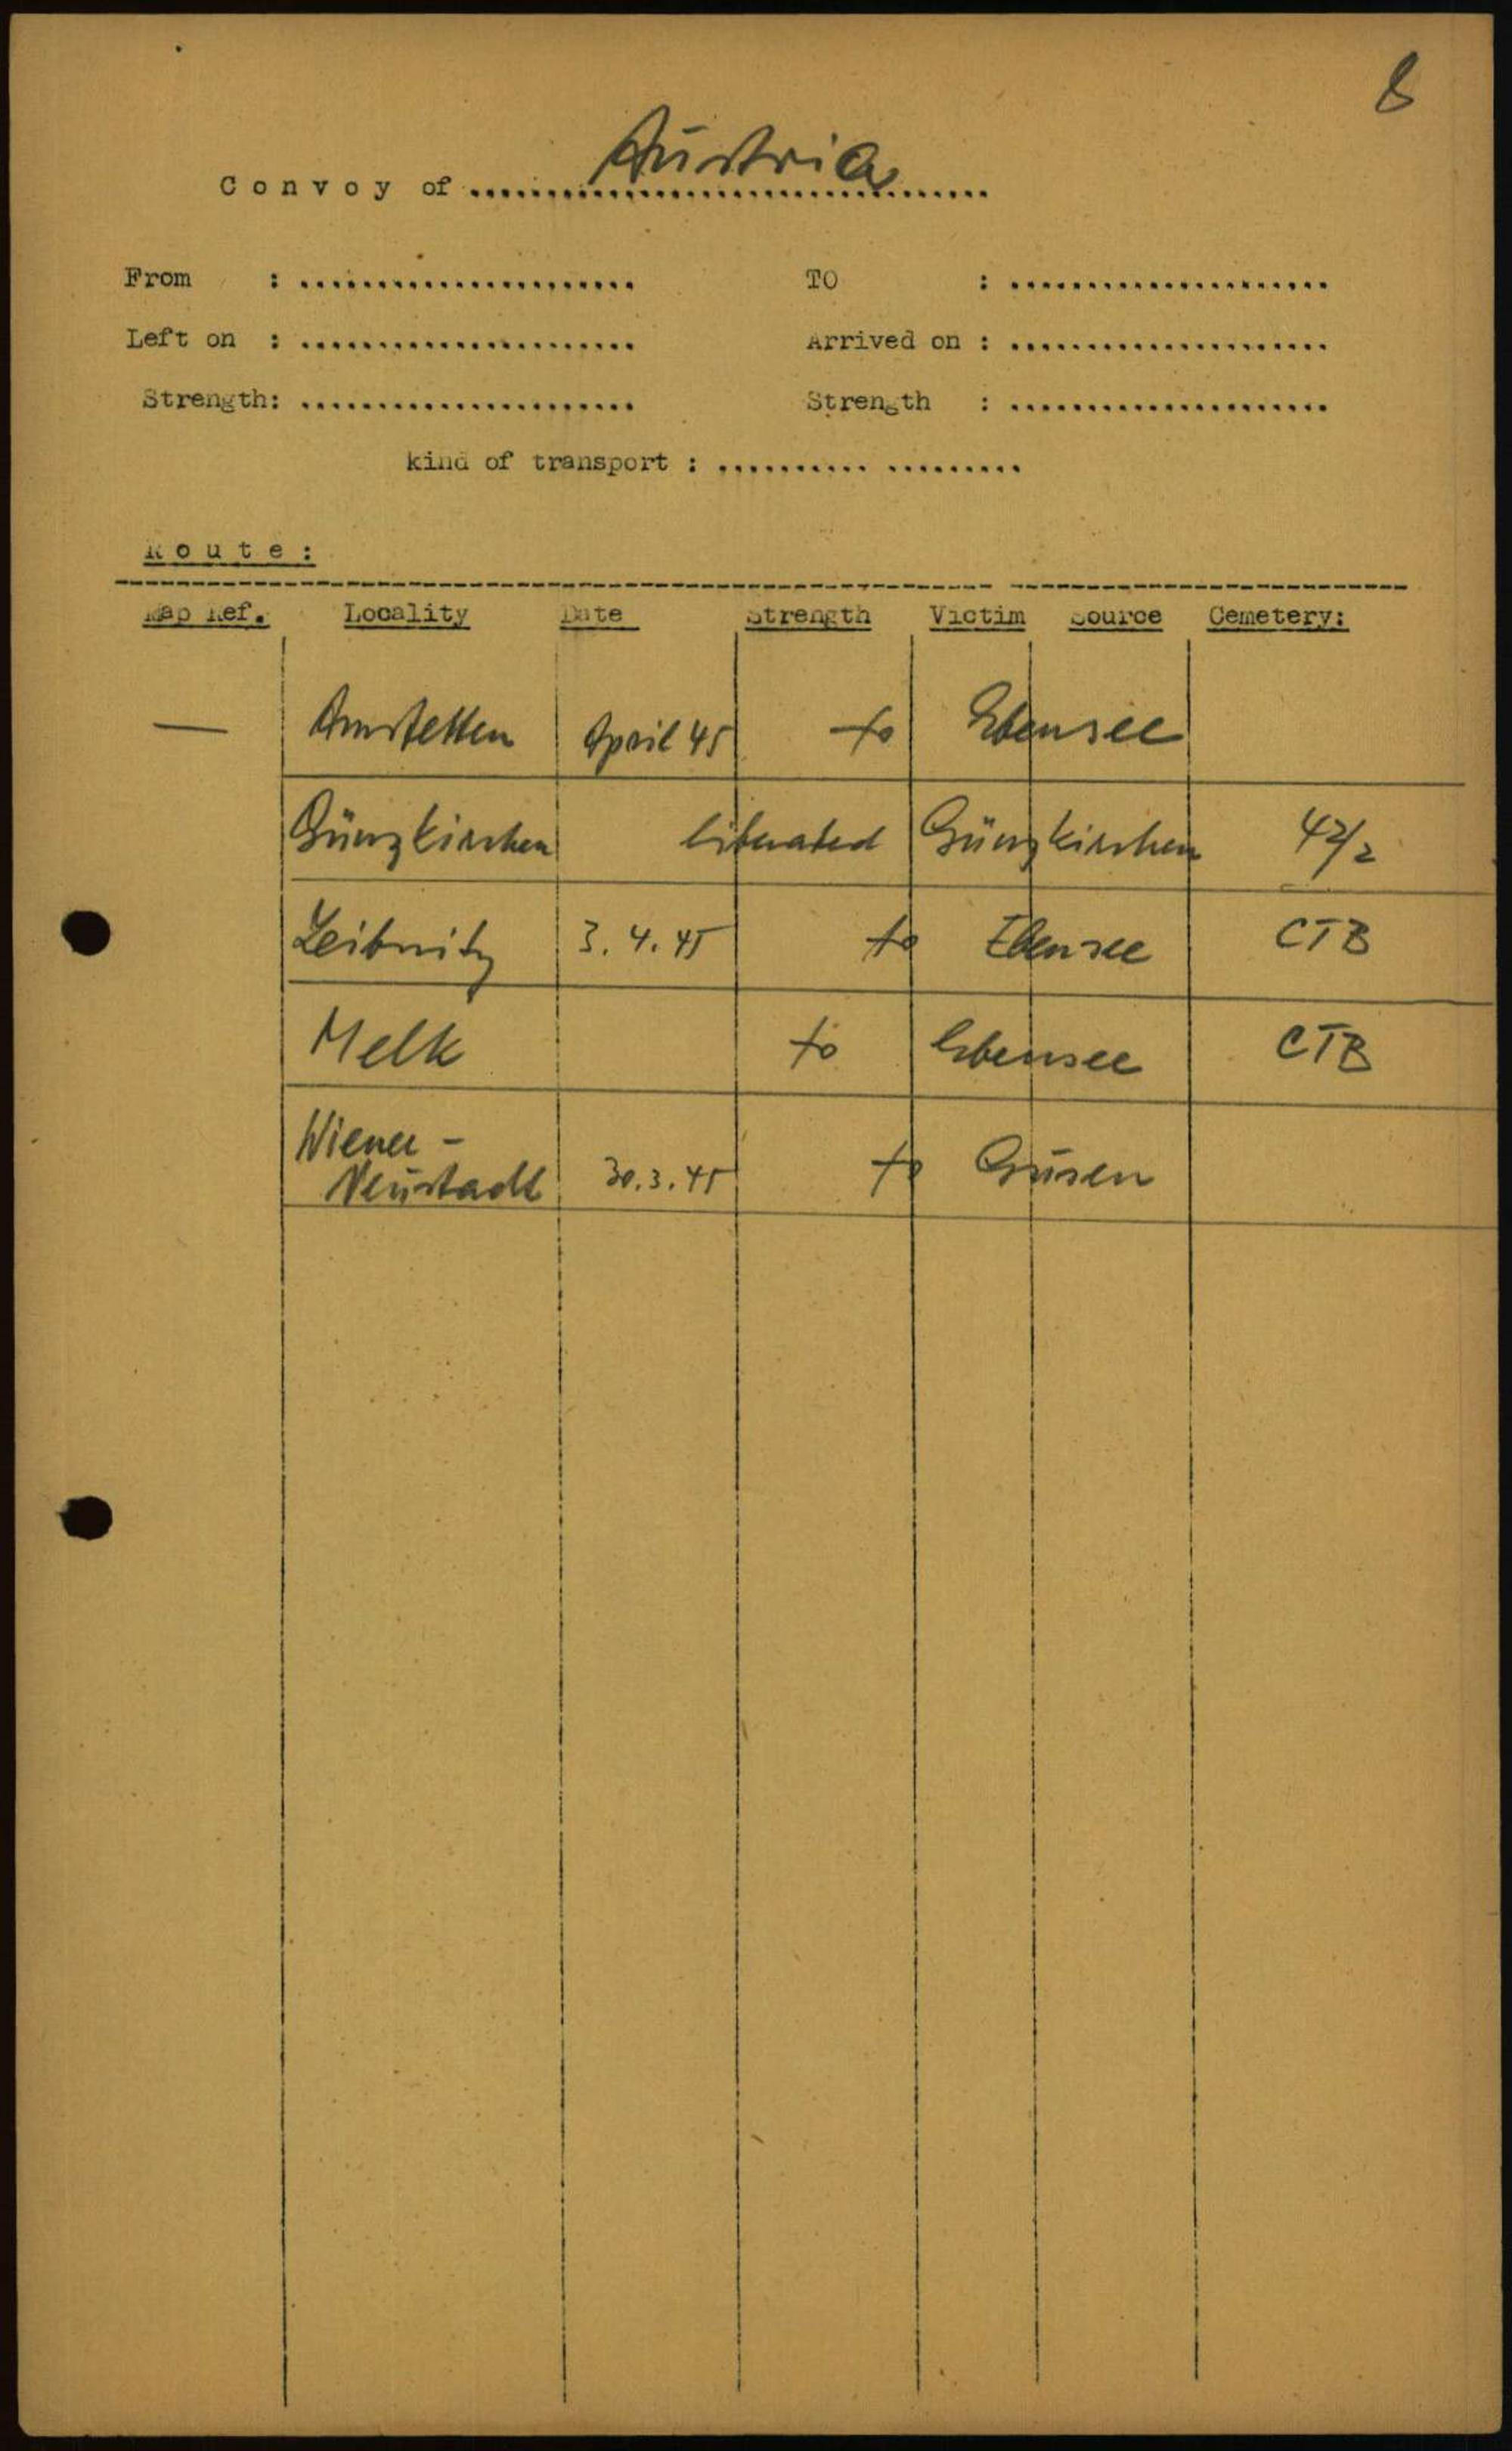 8
Convoy of .......... Austria ..........
From : .................... TO : ....................
Left on : .................... Arrived on : ....................
Strength: .................... Strength : ....................
kind of transport : .......... .........
Route:
Map Ref. Locality Date Strength Victim Source Cemetery:
— Amstetten April 45 to Ebensee
Günzkirchen liberated Günzkirchen 42/2
Leibnitz 3.4.45 to Ebensee CTB
Melk to Ebensee CTB
Wiener -
Neustadt 30.3.45 to Gusen